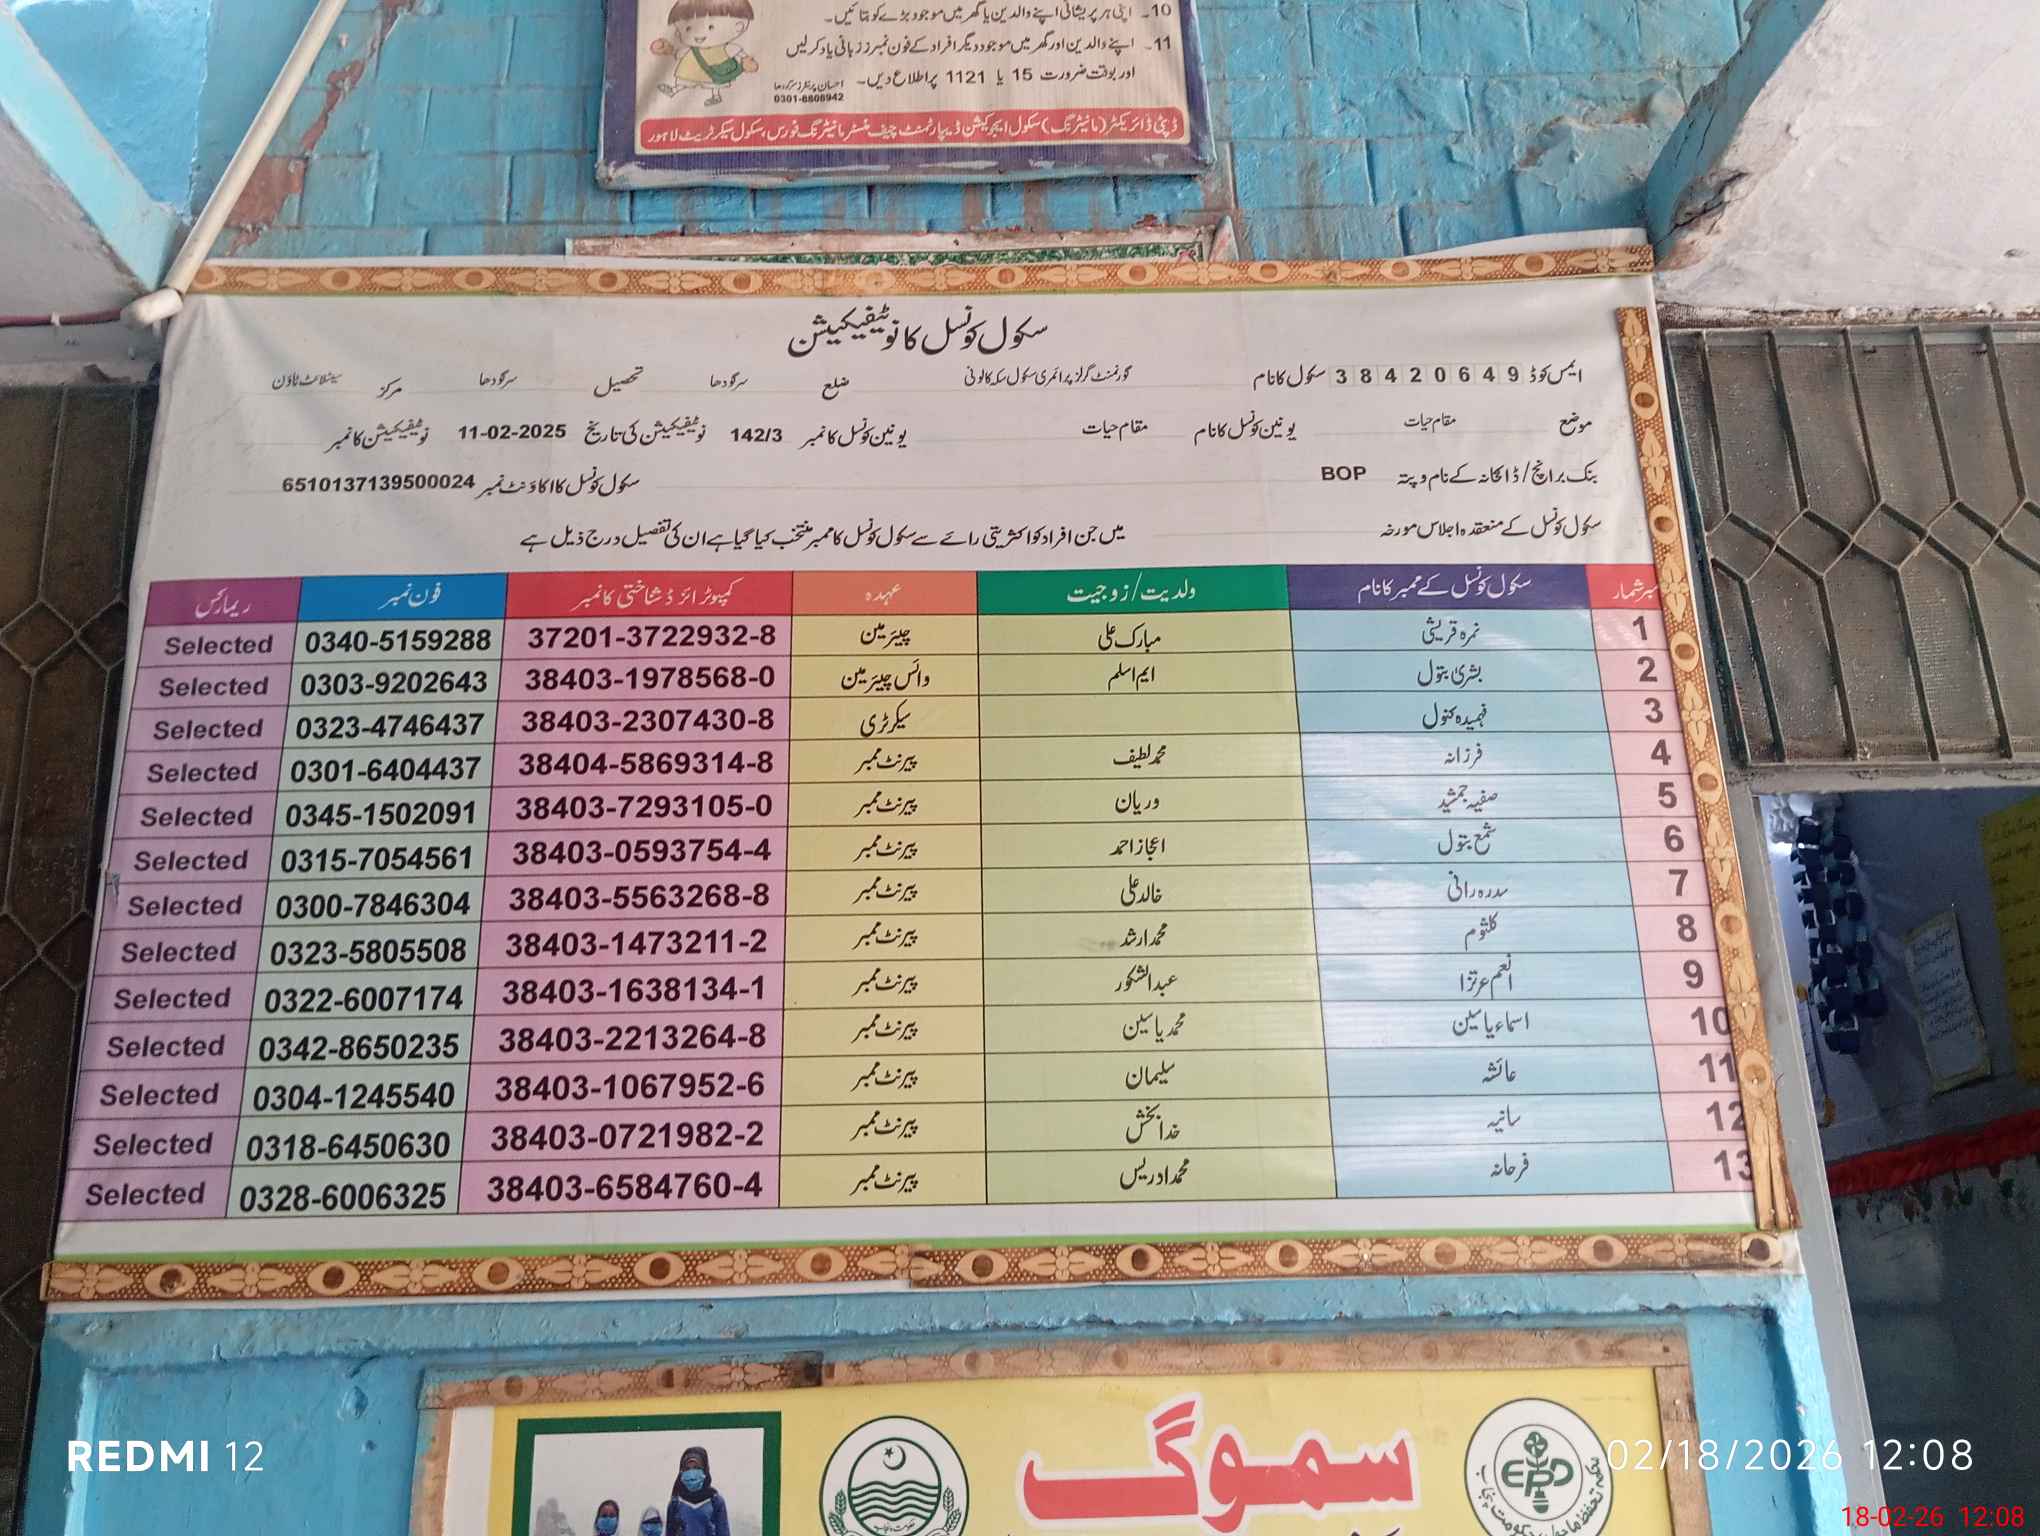 10۔ اپنی ہر پریشانی اپنے والدین یا گھر میں موجود بڑے کو بتائیں۔
11۔ اپنے والدین اور گھر میں موجود دیگر افراد کے فون نمبرز زبانی یاد کر لیں
اور بوقت ضرورت 15 یا 1121 پر اطلاع دیں۔
احسان پرنٹرز سرگودھا
0301-8606942
ڈپٹی ڈائریکٹر (مانیٹرنگ) سکول ایجوکیشن ڈیپارٹمنٹ چیف منسٹر مانیٹرنگ فورس، سکول سیکرٹریٹ لاہور
سکول کونسل کا نوٹیفیکیشن
ایمس کوڈ 38420649 سکول کا نام گورنمنٹ گرلز پرائمری سکول سکہ کالونی ضلع سرگودھا تحصیل سرگودھا مرکز سیٹلائٹ ٹاؤن
موضع مقام حیات یونین کونسل کا نام مقام حیات یونین کونسل کا نمبر 142/3 نوٹیفیکیشن کی تاریخ 11-02-2025 نوٹیفیکیشن کا نمبر
بنک برانچ / ڈاکخانہ کے نام و پتہ BOP سکول کونسل کا اکاؤنٹ نمبر 6510137139500024
سکول کونسل کے منعقدہ اجلاس مورخہ میں جن افراد کو اکثریتی رائے سے سکول کونسل کا ممبر منتخب کیا گیا ہے ان کی تفصیل درج ذیل ہے
نمبر شمار سکول کونسل کے ممبر کا نام ولدیت / زوجیت عہدہ کمپیوٹرائزڈ شناختی کا نمبر فون نمبر ریمارکس
1 نمرہ قریشی مبارک علی چیئرمین 37201-3722932-8 0340-5159288 Selected
2 بشریٰ بتول ایم اسلم وائس چیئرمین 38403-1978568-0 0303-9202643 Selected
3 فہمیدہ کنول سیکرٹری 38403-2307430-8 0323-4746437 Selected
4 فرزانہ محمد لطیف پیرنٹ ممبر 38404-5869314-8 0301-6404437 Selected
5 صفیہ جمشید وریان پیرنٹ ممبر 38403-7293105-0 0345-1502091 Selected
6 شمع بتول اعجاز احمد پیرنٹ ممبر 38403-0593754-4 0315-7054561 Selected
7 سدرہ رانی خالد علی پیرنٹ ممبر 38403-5563268-8 0300-7846304 Selected
8 کلثوم محمد ارشد پیرنٹ ممبر 38403-1473211-2 0323-5805508 Selected
9 انعم عزتزا عبدالشکور پیرنٹ ممبر 38403-1638134-1 0322-6007174 Selected
10 اسماء یاسین محمد یاسین پیرنٹ ممبر 38403-2213264-8 0342-8650235 Selected
11 عائشہ سلیمان پیرنٹ ممبر 38403-1067952-6 0304-1245540 Selected
12 سانیہ خدا بخش پیرنٹ ممبر 38403-0721982-2 0318-6450630 Selected
13 فرحانہ محمد ادریس پیرنٹ ممبر 38403-6584760-4 0328-6006325 Selected
سموگ
EPD
REDMI 12
02/18/2026 12:08
18-02-26 12:08